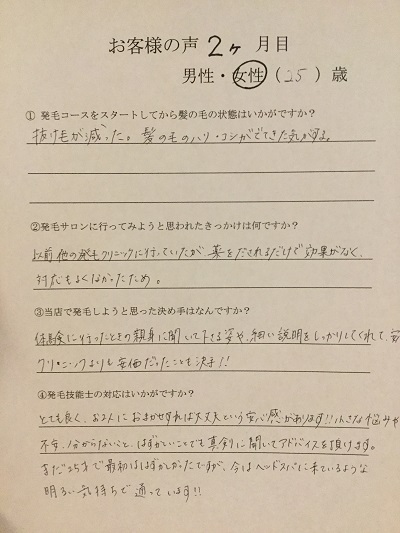 お客様の声 2ヶ 月目
男性・女性（25）歳
①発毛コースをスタートしてから髪の毛の状態はいかがですか？
抜け毛が減った。髪の毛のハリ・コシがでてきた気がする。
②発毛サロンに行ってみようと思われたきっかけは何ですか？
以前他の発毛クリニックに行っていたが、薬をだされるだけで効果がなく、
対応もよくなかったため。
③当店で発毛しようと思った決め手はなんですか？
体験に行ったときの親身に聞いて下さる姿や、細い説明をしっかりしてくれて、
クリニックよりも安価だったことも決手!!
④発毛技能士の対応はいかがですか？
とても良く、お2人におまかせすれば大丈夫という安心感があります!!小さな悩みや
不安、分からないこと、はずかしいことでも真剣に聞いてアドバイスを頂けます。
まだ25才で最初ははずかしかったですが、今はヘッドスパに来ているような
明るい気持ちで通っています!!